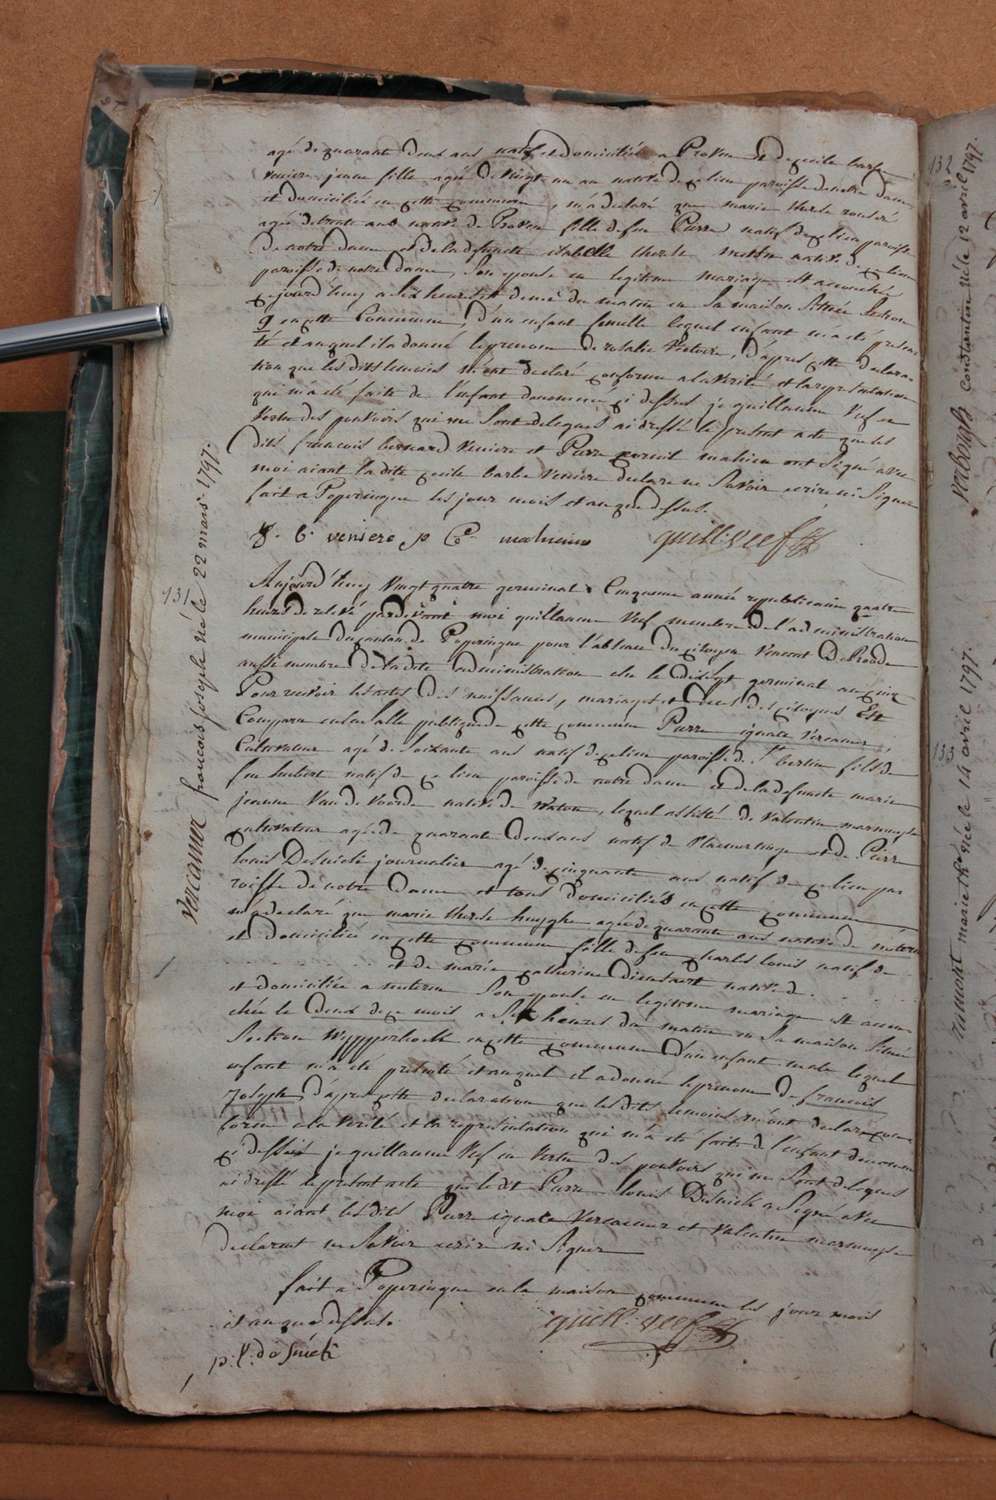 agé de quarante deux ans natif et domicilié a Proven et de cecile barbe
veniere jeune fille agée de vingt un an native de ce lieu paroisse de notre dame
et domiciliée en cette commune, m'a declaré que marie therese
agée de trente ans native de Proven fille de feu Pierre natif de ce lieu paroisse
de notre dame et de la defuncte isabelle therese native de ce lieu
paroisse de notre dame, son epouse en legitime mariage est accouchée
cejourd'huy a six heures et demie du matin en sa maison située section
g en cette commune, d'un enfant femelle lequel enfant m'a été présen
té et auquel il a donné le prenom de rosalie Victoire, d'apres cette declara
tion que les dits temoins m'ont declaré conforme a la verité et la representation
qui m'a été faite de l'enfant denommé ci dessus je guillaume Vef en
vertu des pouvoirs qui me sont delegués ai dressé le present acte que les
dits francois bernard veniere et Pierre mahieu ont signé avec
moi aiant la dite cecile barbe veniere declaré ne savoir ecrire ni signer
fait a Poperingue les jour mois et an que dessus.
f. b. veniere p C. mahieu guill: veef
131
Aujourd'huy vingt quatre germinal cinquieme année republicaine quatre
heures de relevé pardevant moi guillaume Vef membre de l'administration
municipale du canton de Poperingue pour l'absence du citoyen Vincent De Roode
aussi membre de la dite administration elu le dixsept germinal an cinq
Pour recevoir les actes des naissances, mariages et deces des citoyens Est
Comparu en la salle publique de cette commune Pierre ignace Vercaemer,
Cultivateur agé de soixante ans natif de ce lieu paroisse de St bertin fils de
feu hubert natif de ce lieu paroisse de notre dame et de la defuncte marie
jeanne Van de Voorde native de Watou, lequel assisté de Valentin
cultivateur agé de quarante deux ans natif de Vlamertinge et de Pierre
louis Desnick journalier agé de cinquante ans natif de ce lieu pa
roisse de notre Dame et tous domiciliés en cette commune
m'a declaré que marie therese huyghe agée de quarante ans native de
et domiciliée en cette commune fille de feu charles louis natif de
et de marie catherine native d.
et domiciliée a son epouse en legitime mariage est accou
chée le deux de ce mois a sept heures du matin en sa maison située
section en cette commune d'un enfant male lequel
enfant m'a été présenté et auquel il a donné le prenom de francois
Joseph, d'apres cette declaration que les dits temoins m'ont declaré con
forme a la verité et la representation qui m'a été faite de l'enfant denommé
ci dessus je guillaume Vef en vertu des pouvoirs qui me sont delegués
ai dressé le present acte que le dit Pierre louis Desnick a signé avec
moi aiant les dits Pierre ignace Vercaemer et Valentin
declarent ne savoir ecrire ni signer
fait a Poperingue en la maison commune les jour mois
et an que dessus.
guill: veef
p: l: de snick
vercaemer francois joseph né le 22 mars 1797.
132
constantin né le 12 avril 1797.
133
marie née le 14 avril 1797.